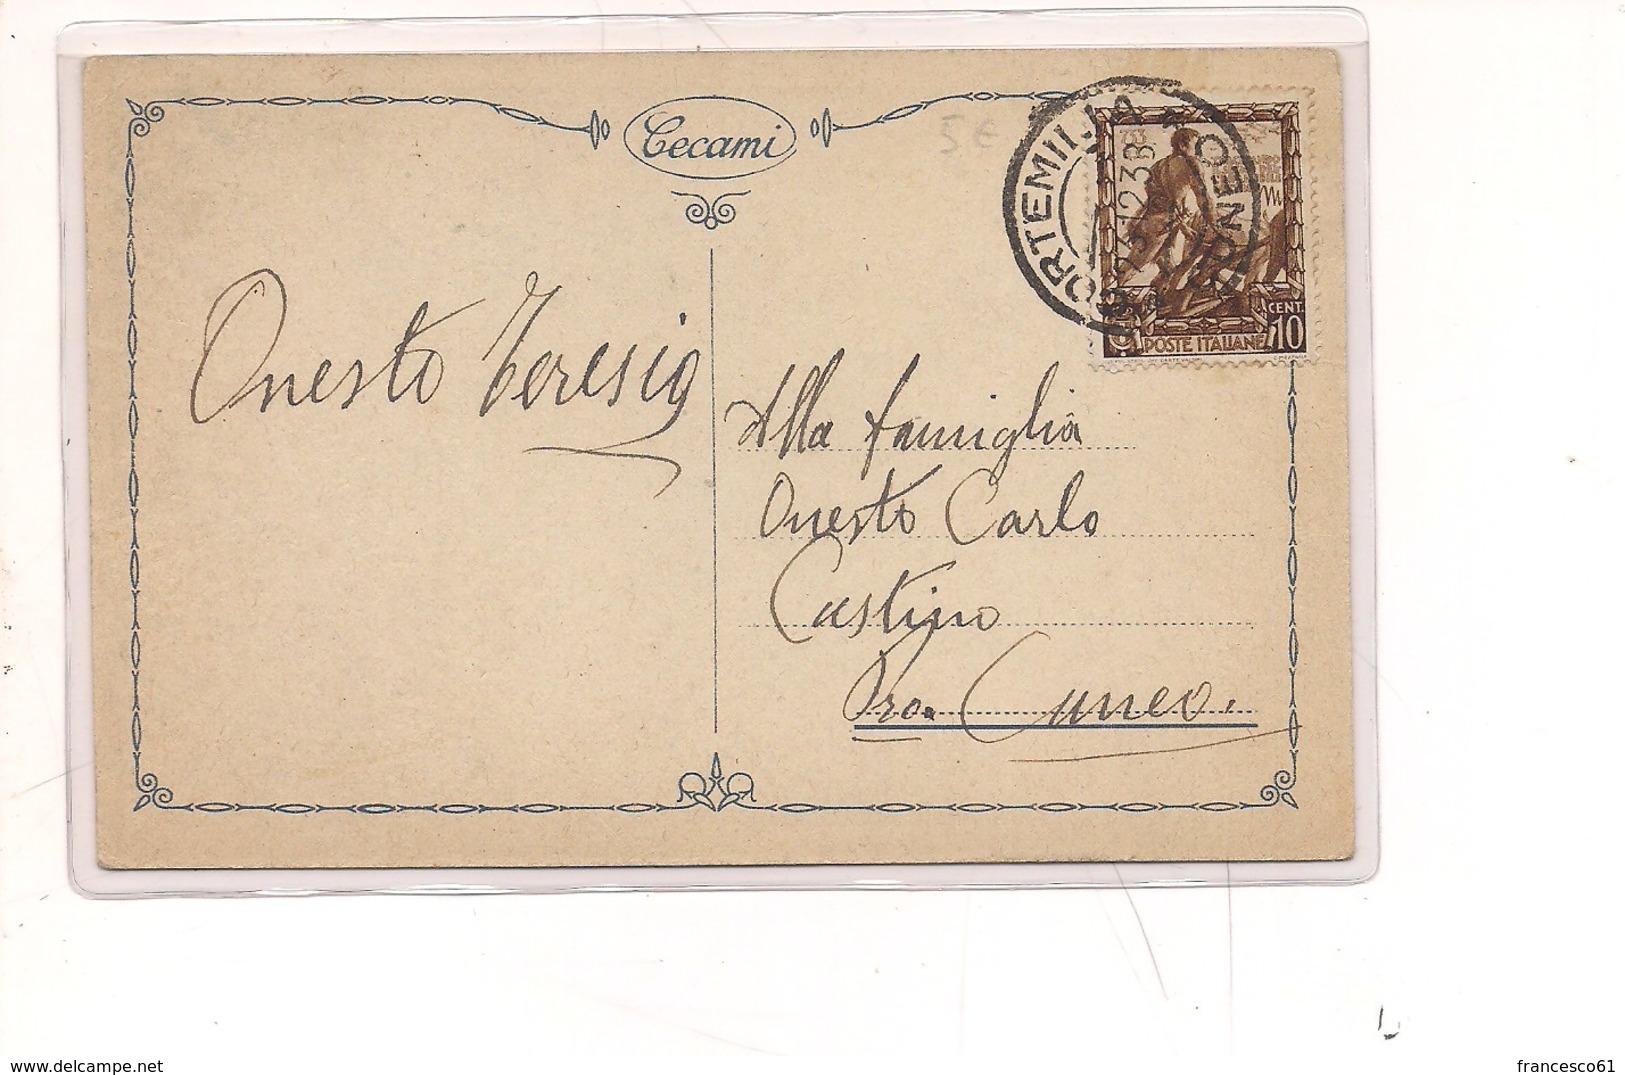 Cecami
5 €
CORTEMILIA
CUNEO
23.12.38
CENT
10
POSTE ITALIANE
Onesto Teresio
Alla famiglia
Onesto Carlo
Castino
Pro. Cuneo.
www.delcampe.net
francesco61